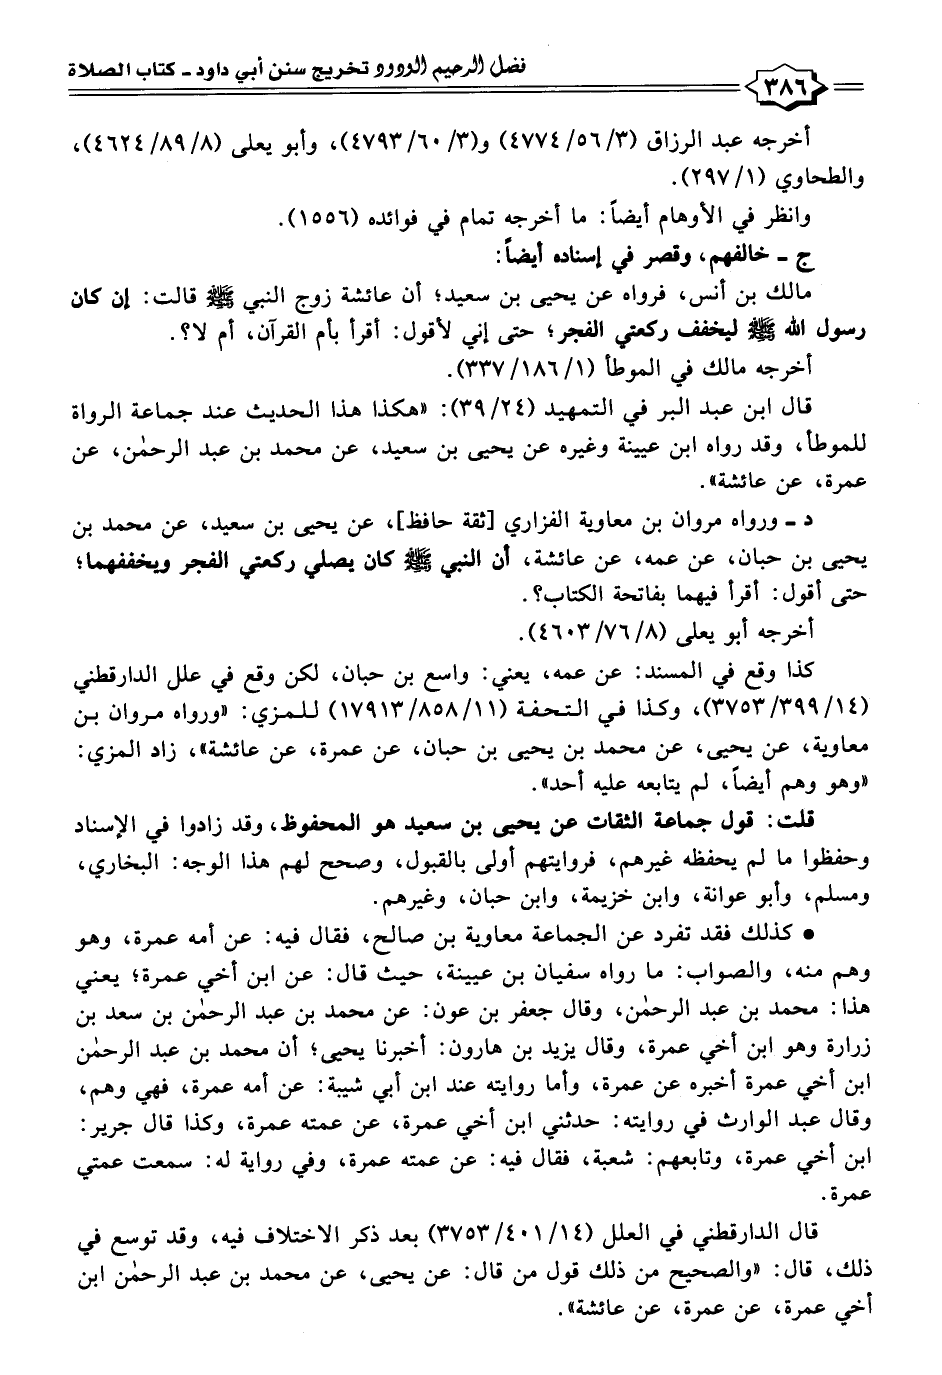 فضل الرحيم الودود تخريج سنن أبي داود - كتاب الصلاة
٣٨٦
أخرجه عبد الرزاق (٣/ ٥٦/ ٤٧٧٤) و(٣/ ٦٠/ ٤٧٩٣)، وأبو يعلى (٨/ ٨٩/ ٤٦٢٤)،
والطحاوي (١/ ٢٩٧).
وانظر في الأوهام أيضاً: ما أخرجه تمام في فوائده (١٥٥٦).
ج - خالفهم، وقصر في إسناده أيضاً:
مالك بن أنس، فرواه عن يحيى بن سعيد؛ أن عائشة زوج النبي ﷺ قالت: إن كان
رسول الله ﷺ ليخفف ركعتي الفجر؛ حتى إني لأقول: أقرأ بأم القرآن، أم لا؟.
أخرجه مالك في الموطأ (١/ ١٨٦/ ٣٣٧).
قال ابن عبد البر في التمهيد (٢٤/ ٣٩): «هكذا هذا الحديث عند جماعة الرواة
للموطأ، وقد رواه ابن عيينة وغيره عن يحيى بن سعيد، عن محمد بن عبد الرحمٰن، عن
عمرة، عن عائشة».
د - ورواه مروان بن معاوية الفزاري [ثقة حافظ]، عن يحيى بن سعيد، عن محمد بن
يحيى بن حبان، عن عمه، عن عائشة، أن النبي ﷺ كان يصلي ركعتي الفجر ويخففهما؛
حتى أقول: أقرأ فيهما بفاتحة الكتاب؟.
أخرجه أبو يعلى (٨/ ٧٦/ ٤٦٠٣).
كذا وقع في المسند: عن عمه، يعني: واسع بن حبان، لكن وقع في علل الدارقطني
(١٤/ ٣٩٩/ ٣٧٥٣)، وكذا في التحفة (١١/ ٨٥٨/ ١٧٩١٣) للمزي: «ورواه مروان بن
معاوية، عن يحيى، عن محمد بن يحيى بن حبان، عن عمرة، عن عائشة»، زاد المزي:
«وهو وهم أيضاً، لم يتابعه عليه أحد».
قلت: قول جماعة الثقات عن يحيى بن سعيد هو المحفوظ، وقد زادوا في الإسناد
وحفظوا ما لم يحفظه غيرهم، فروايتهم أولى بالقبول، وصحح لهم هذا الوجه: البخاري،
ومسلم، وأبو عوانة، وابن خزيمة، وابن حبان، وغيرهم.
• كذلك فقد تفرد عن الجماعة معاوية بن صالح، فقال فيه: عن أمه عمرة، وهو
وهم منه، والصواب: ما رواه سفيان بن عيينة، حيث قال: عن ابن أخي عمرة؛ يعني
هذا: محمد بن عبد الرحمٰن، وقال جعفر بن عون: عن محمد بن عبد الرحمٰن بن سعد بن
زرارة وهو ابن أخي عمرة، وقال يزيد بن هارون: أخبرنا يحيى؛ أن محمد بن عبد الرحمٰن
ابن أخي عمرة أخبره عن عمرة، وأما روايته عند ابن أبي شيبة: عن أمه عمرة، فهي وهم،
وقال عبد الوارث في روايته: حدثني ابن أخي عمرة، عن عمته عمرة، وكذا قال جرير:
ابن أخي عمرة، وتابعهم: شعبة، فقال فيه: عن عمته عمرة، وفي رواية له: سمعت عمتي
عمرة.
قال الدارقطني في العلل (١٤/ ٤٠١/ ٣٧٥٣) بعد ذكر الاختلاف فيه، وقد توسع في
ذلك، قال: «والصحيح من ذلك قول من قال: عن يحيى، عن محمد بن عبد الرحمٰن ابن
أخي عمرة، عن عمرة، عن عائشة».